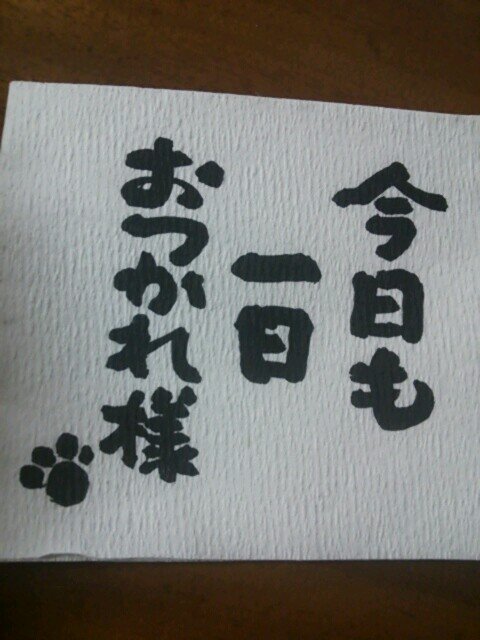 今日も
一日
おつかれ様